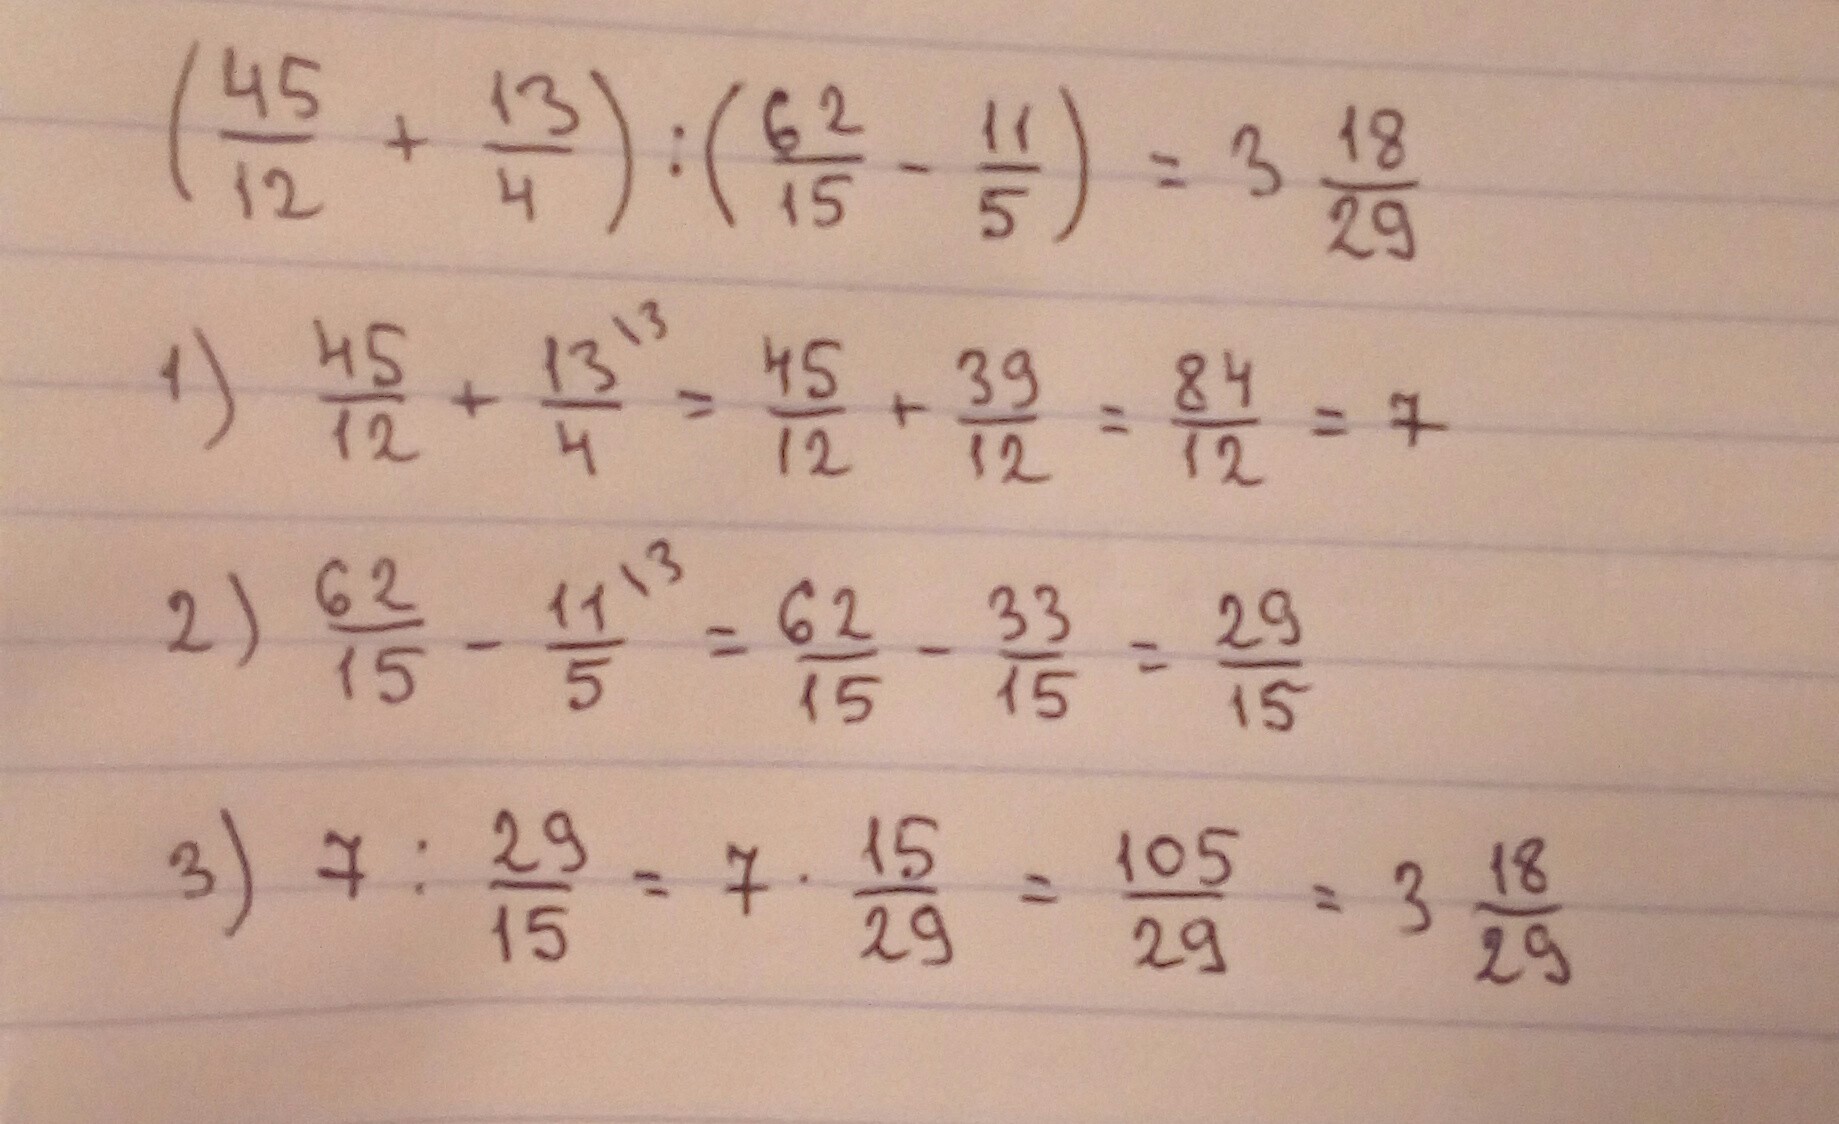 (45/12 + 13/4) : (62/15 - 11/5) = 3 18/29
1) 45/12 + 13/4 \3 = 45/12 + 39/12 = 84/12 = 7
2) 62/15 - 11/5 \3 = 62/15 - 33/15 = 29/15
3) 7 : 29/15 = 7 · 15/29 = 105/29 = 3 18/29